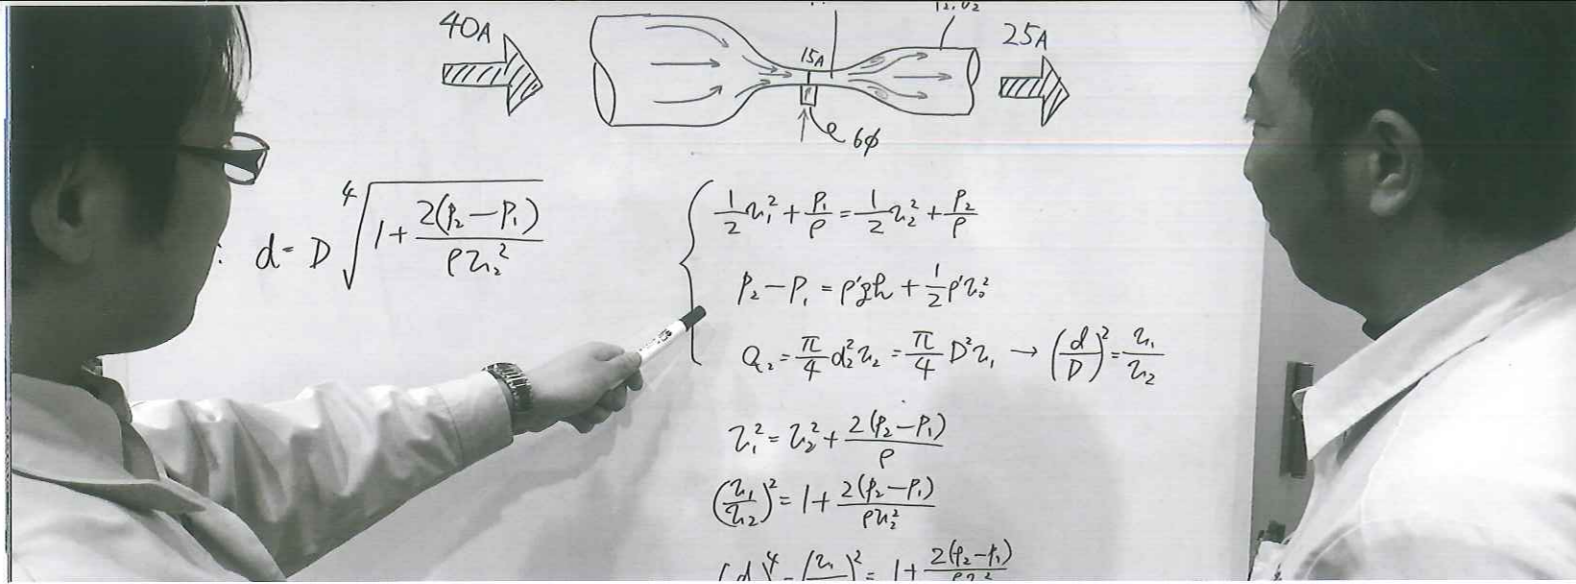 40A
15A
25A
6φ
d = D ⁴√(1 + 2(p₂ − p₁) / ρv₂²)
½v₁² + p₁/ρ = ½v₂² + p₂/ρ
p₂ − p₁ = ρ'gh + ½ρ'v₀²
Q₂ = π/4 d₂² v₂ = π/4 D² v₁ → (d/D)² = v₁/v₂
v₁² = v₂² + 2(p₂ − p₁) / ρ
(v₁/v₂)² = 1 + 2(p₂ − p₁) / ρv₂²